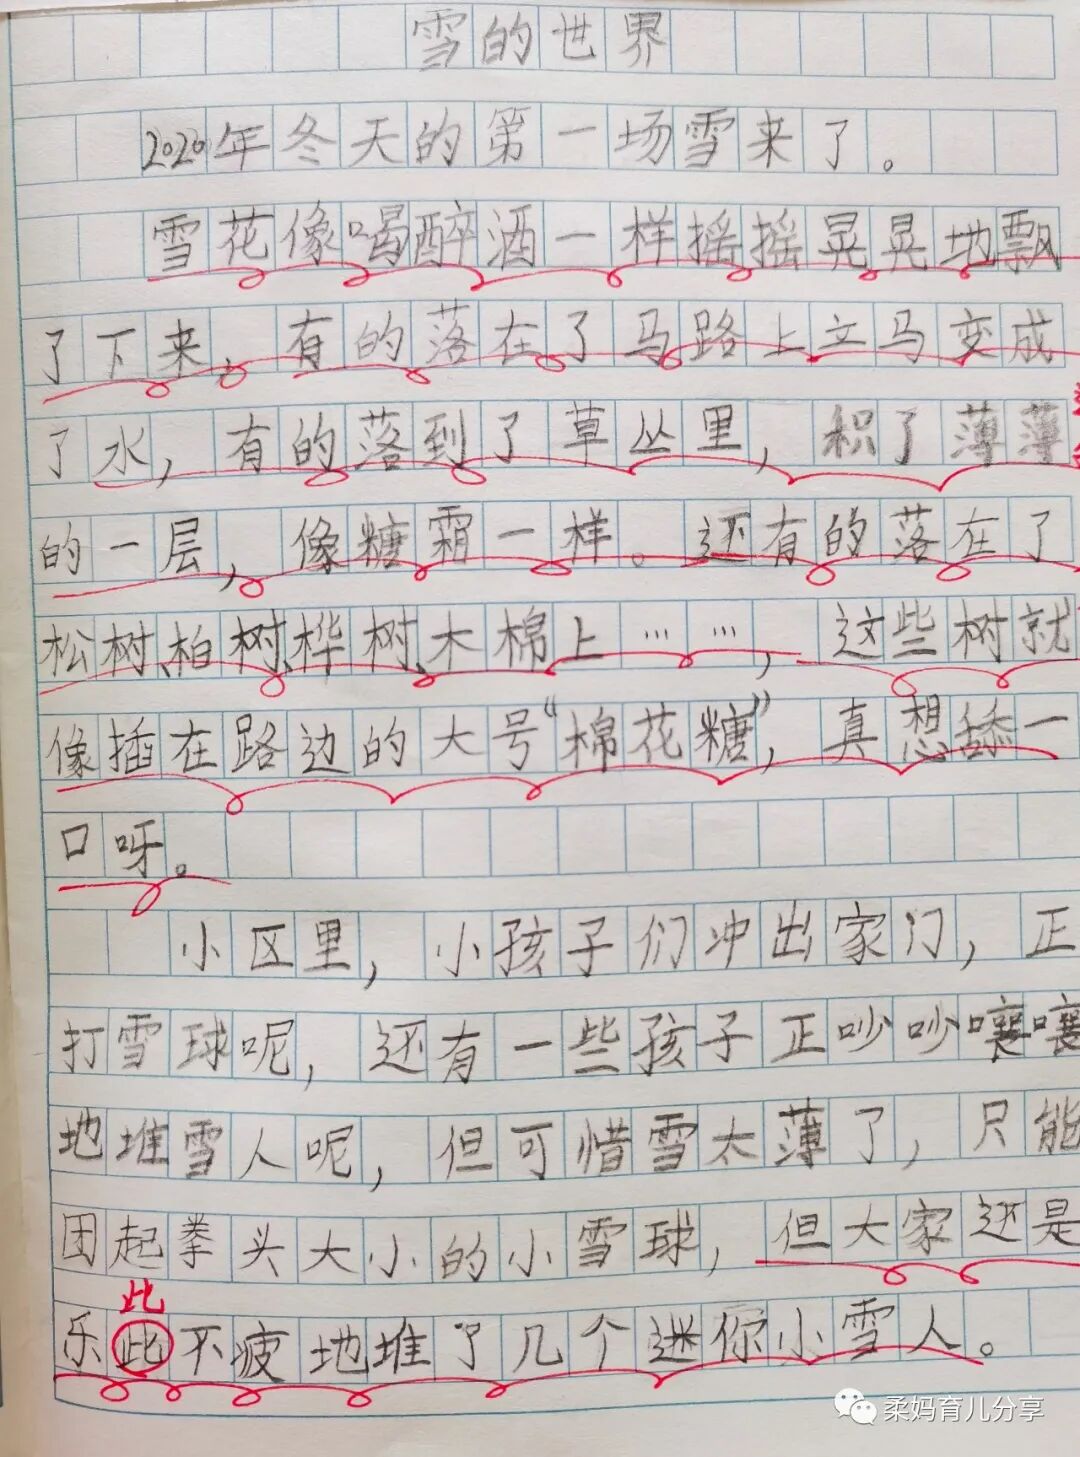 雪的世界
2020年冬天的第一场雪来了。
雪花像喝醉酒一样摇摇晃晃地飘
了下来，有的落在了马路上立马变成
了水，有的落到了草丛里，积了薄薄
的一层，像糖霜一样。还有的落在了
松树、柏树、桦树、木棉上……，这些树就
像插在路边的大号“棉花糖”，真想舔一
口呀。
小区里，小孩子们冲出家门，正
打雪球呢，还有一些孩子正吵吵嚷嚷
地堆雪人呢，但可惜雪太薄了，只能
团起拳头大小的小雪球，但大家还是
此
乐此不疲地堆了几个迷你小雪人。
柔妈育儿分享